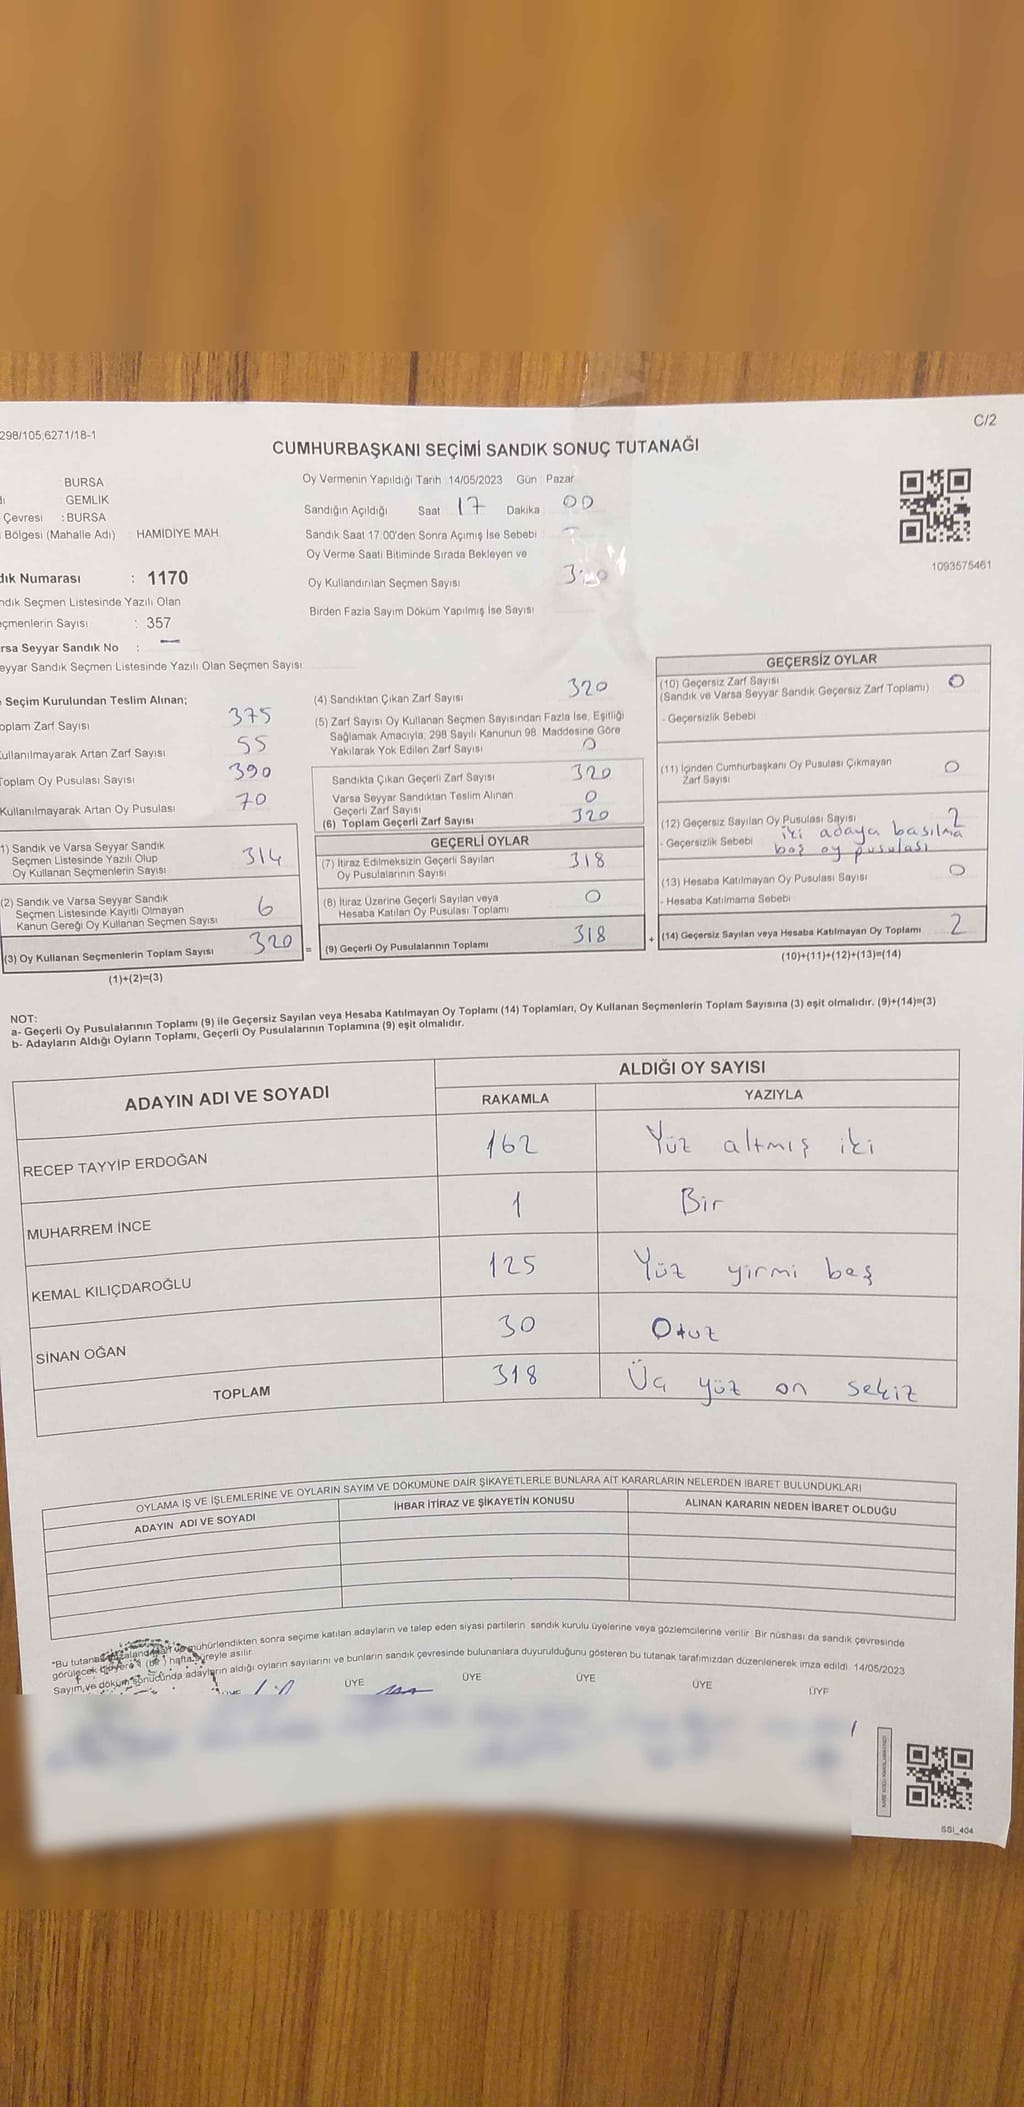 298/105;6271/18-1
C/2
CUMHURBAŞKANI SEÇİMİ SANDIK SONUÇ TUTANAĞI
BURSA
GEMLİK
Çevresi : BURSA
Bölgesi (Mahalle Adı) HAMİDİYE MAH.
dık Numarası : 1170
ndık Seçmen Listesinde Yazılı Olan
eçmenlerin Sayısı : 357
rsa Seyyar Sandık No : —
eyyar Sandık Seçmen Listesinde Yazılı Olan Seçmen Sayısı:
Oy Vermenin Yapıldığı Tarih 14/05/2023 Gün Pazar
Sandığın Açıldığı Saat 17 Dakika 00
Sandık Saat 17:00'den Sonra Açımış İse Sebebi
Oy Verme Saati Bitiminde Sırada Bekleyen ve
Oy Kullandırılan Seçmen Sayısı 320
Birden Fazla Sayım Döküm Yapılmış İse Sayısı
1093575461
Seçim Kurulundan Teslim Alınan;
oplam Zarf Sayısı 375
ullanılmayarak Artan Zarf Sayısı 55
Toplam Oy Pusulası Sayısı 390
Kullanılmayarak Artan Oy Pusulası 70
1) Sandık ve Varsa Seyyar Sandık
Seçmen Listesinde Yazılı Olup
Oy Kullanan Seçmenlerin Sayısı 314
(2) Sandık ve Varsa Seyyar Sandık
Seçmen Listesinde Kayıtlı Olmayan
Kanun Gereği Oy Kullanan Seçmen Sayısı 6
(3) Oy Kullanan Seçmenlerin Toplam Sayısı 320
(1)+(2)=(3)
(4) Sandıktan Çıkan Zarf Sayısı 320
(5) Zarf Sayısı Oy Kullanan Seçmen Sayısından Fazla İse, Eşitliği
Sağlamak Amacıyla, 298 Sayılı Kanunun 98. Maddesine Göre
Yakılarak Yok Edilen Zarf Sayısı 0
Sandıkta Çıkan Geçerli Zarf Sayısı 320
Varsa Seyyar Sandıktan Teslim Alınan
Geçerli Zarf Sayısı 0
(6) Toplam Geçerli Zarf Sayısı 320
GEÇERLİ OYLAR
(7) İtiraz Edilmeksizin Geçerli Sayılan
Oy Pusulalarının Sayısı 318
(8) İtiraz Üzerine Geçerli Sayılan veya
Hesaba Katılan Oy Pusulası Toplamı 0
(9) Geçerli Oy Pusulalarının Toplamı 318
GEÇERSİZ OYLAR
(10) Geçersiz Zarf Sayısı 0
(Sandık ve Varsa Seyyar Sandık Geçersiz Zarf Toplamı)
- Geçersizlik Sebebi
(11) İçinden Cumhurbaşkanı Oy Pusulası Çıkmayan
Zarf Sayısı 0
(12) Geçersiz Sayılan Oy Pusulası Sayısı 2
- Geçersizlik Sebebi iki adaya basılma
boş oy pusulası
(13) Hesaba Katılmayan Oy Pusulası Sayısı 0
- Hesaba Katılmama Sebebi
= + (14) Geçersiz Sayılan veya Hesaba Katılmayan Oy Toplamı 2
(10)+(11)+(12)+(13)=(14)
NOT:
a- Geçerli Oy Pusulalarının Toplamı (9) ile Geçersiz Sayılan veya Hesaba Katılmayan Oy Toplamı (14) Toplamları, Oy Kullanan Seçmenlerin Toplam Sayısına (3) eşit olmalıdır. (9)+(14)=(3)
b- Adayların Aldığı Oyların Toplamı, Geçerli Oy Pusulalarının Toplamına (9) eşit olmalıdır.
ADAYIN ADI VE SOYADI ALDIĞI OY SAYISI
RAKAMLA YAZIYLA
RECEP TAYYİP ERDOĞAN 162 Yüz altmış iki
MUHARREM İNCE 1 Bir
KEMAL KILIÇDAROĞLU 125 Yüz yirmi beş
SİNAN OĞAN 30 Otuz
TOPLAM 318 Üç yüz on sekiz
OYLAMA İŞ VE İŞLEMLERİNE VE OYLARIN SAYIM VE DÖKÜMÜNE DAİR ŞİKAYETLERLE BUNLARA AİT KARARLARIN NELERDEN İBARET BULUNDUKLARI
ADAYIN ADI VE SOYADI İHBAR İTİRAZ VE ŞİKAYETİN KONUSU ALINAN KARARIN NEDEN İBARET OLDUĞU
*Bu tutanak mühürlendikten sonra seçime katılan adayların ve talep eden siyasi partilerin sandık kurulu üyelerine veya gözlemcilerine verilir. Bir nüshası da sandık çevresinde
görülecek bir yere 1 (bir) hafta süreyle asılır.
Sayım ve döküm sonucunda adayların aldığı oyların sayılarını ve bunların sandık çevresinde bulunanlara duyurulduğunu gösteren bu tutanak tarafımızdan düzenlenerek imza edildi. 14/05/2023
ÜYE ÜYE ÜYE ÜYE ÜYE
SSI_404